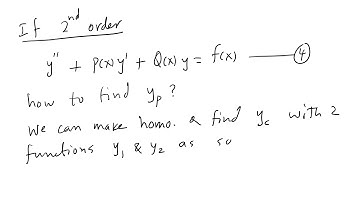 If 2nd order
y'' + P(x) y' + Q(x) y = f(x) —— ④
how to find yp ?
we can make homo. & find yc with 2
functions y1 & y2 as so